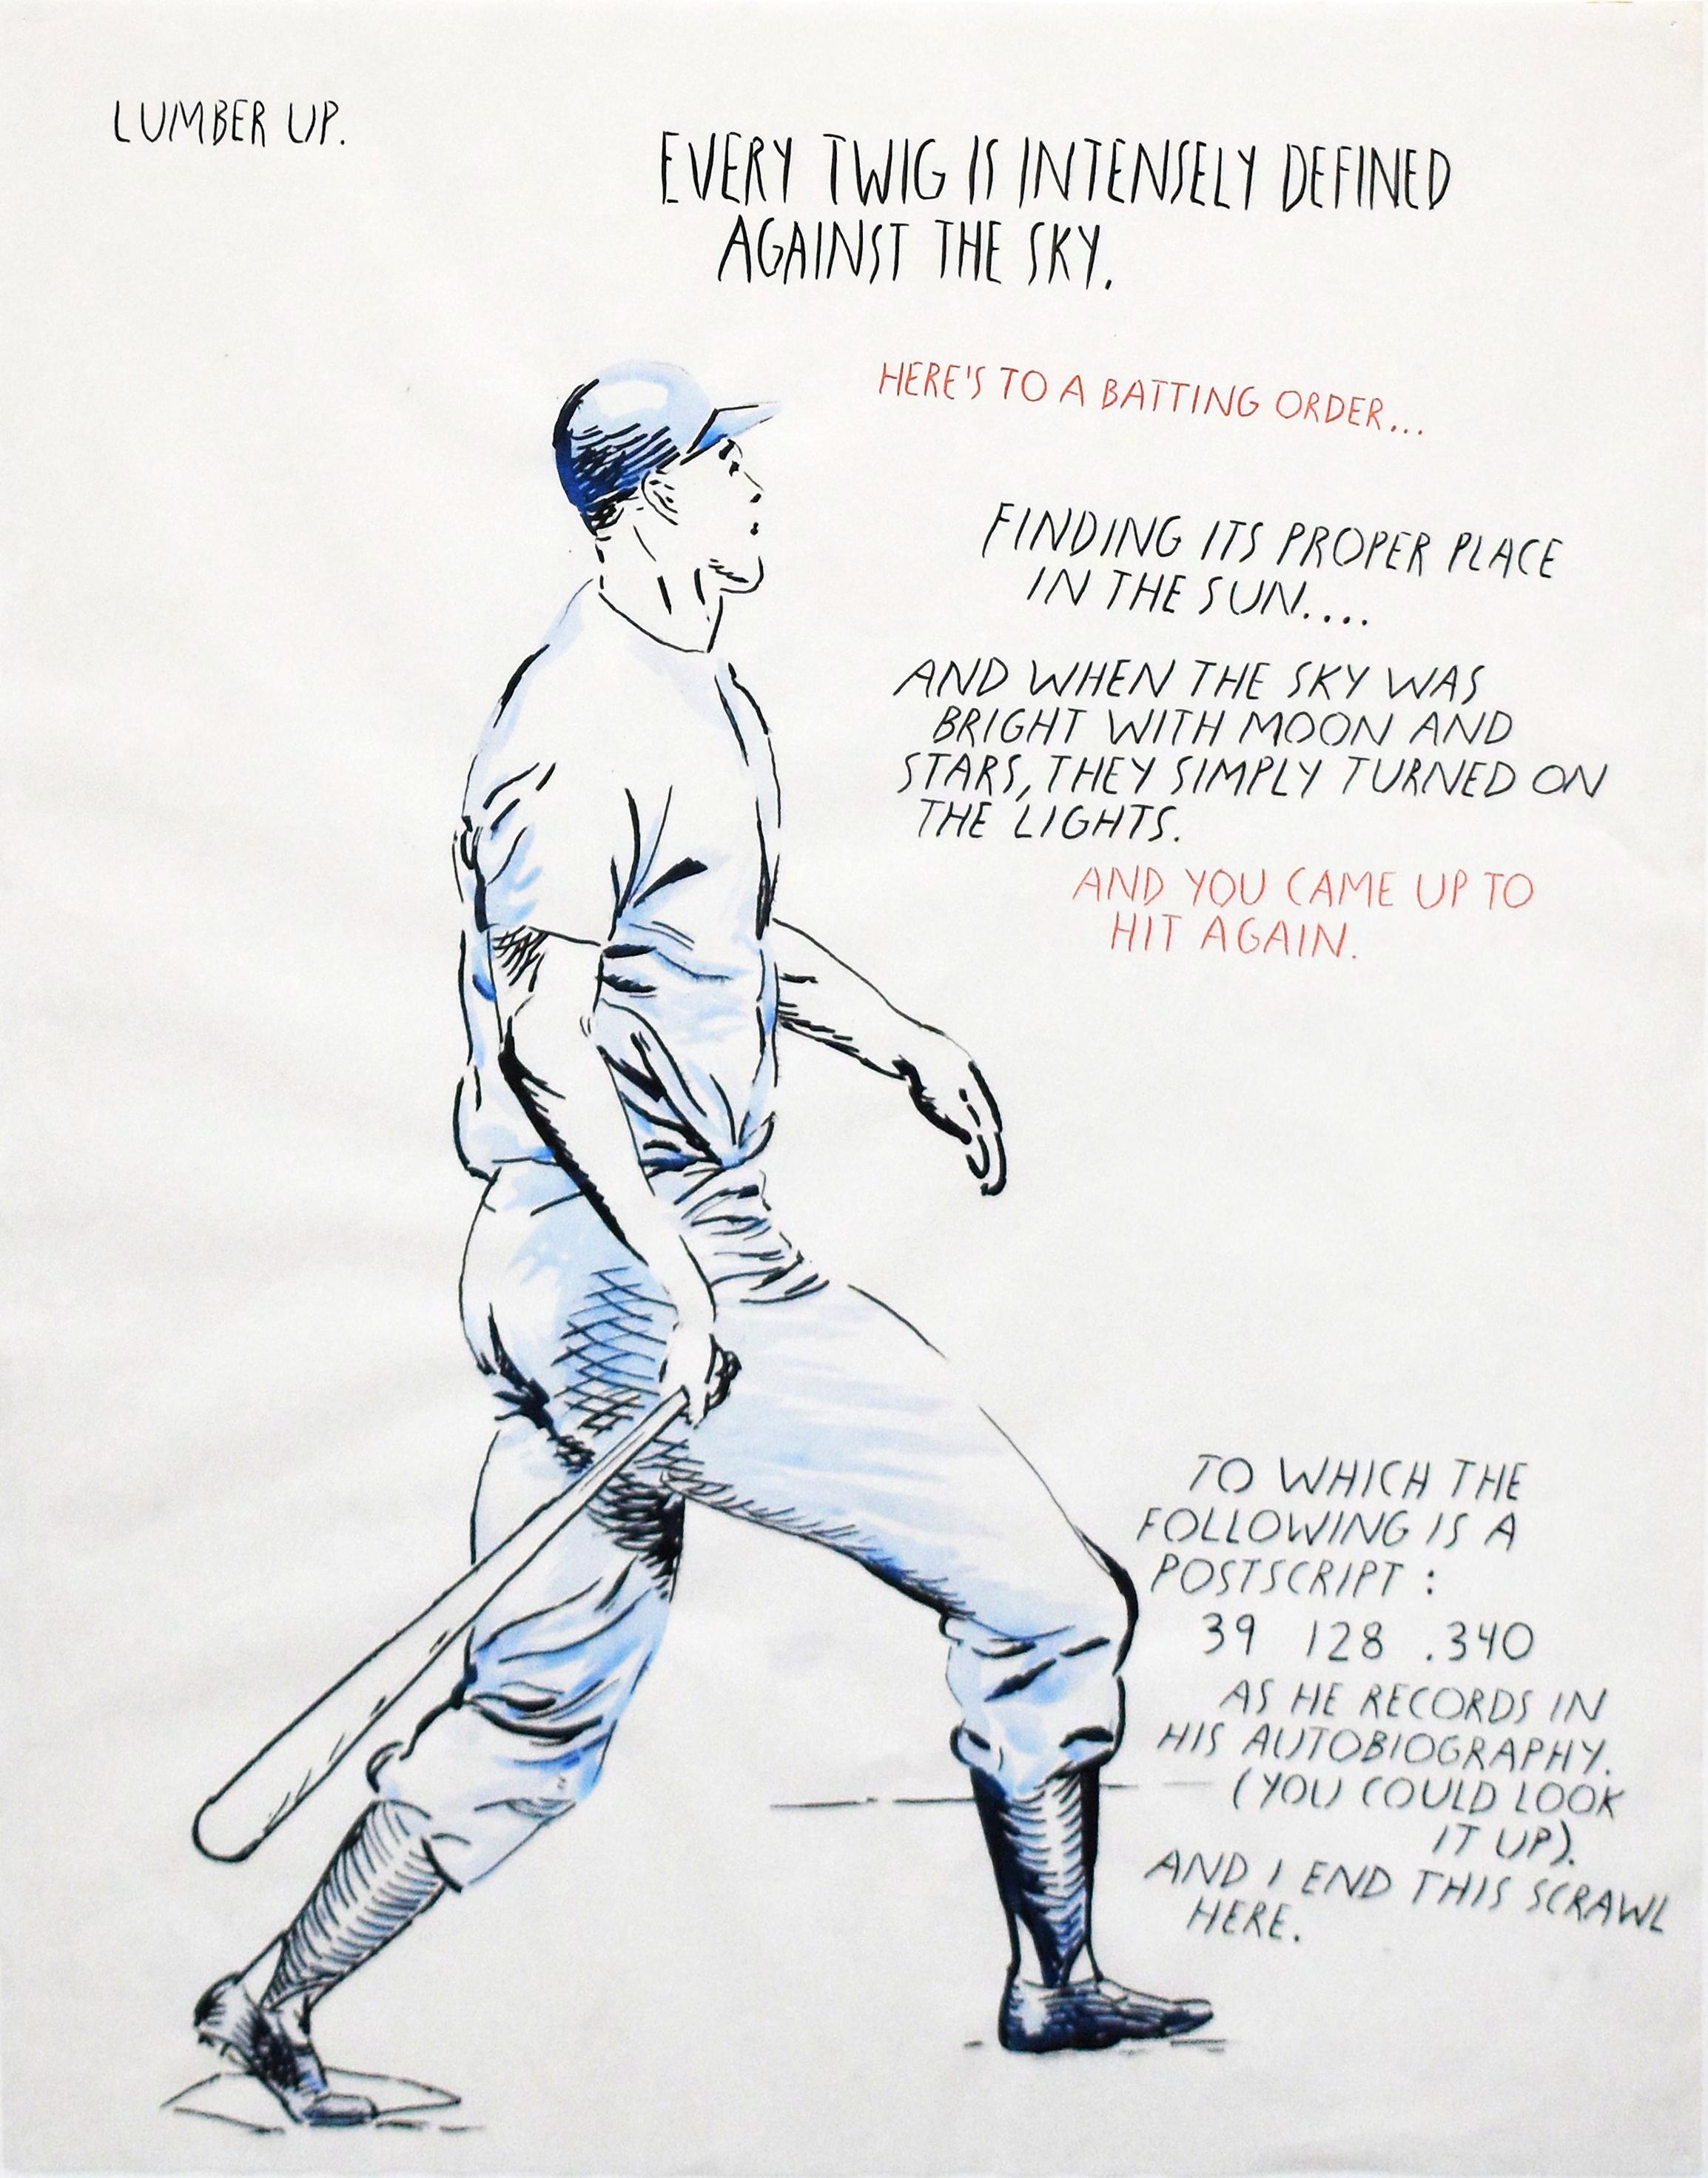 LUMBER UP.
EVERY TWIG IS INTENSELY DEFINED
AGAINST THE SKY.
HERE'S TO A BATTING ORDER...
FINDING ITS PROPER PLACE
IN THE SUN....
AND WHEN THE SKY WAS
BRIGHT WITH MOON AND
STARS, THEY SIMPLY TURNED ON
THE LIGHTS.
AND YOU CAME UP TO
HIT AGAIN.
TO WHICH THE
FOLLOWING IS A
POSTSCRIPT :
39 128 .340
AS HE RECORDS IN
HIS AUTOBIOGRAPHY.
(YOU COULD LOOK
IT UP).
AND I END THIS SCRAWL
HERE.